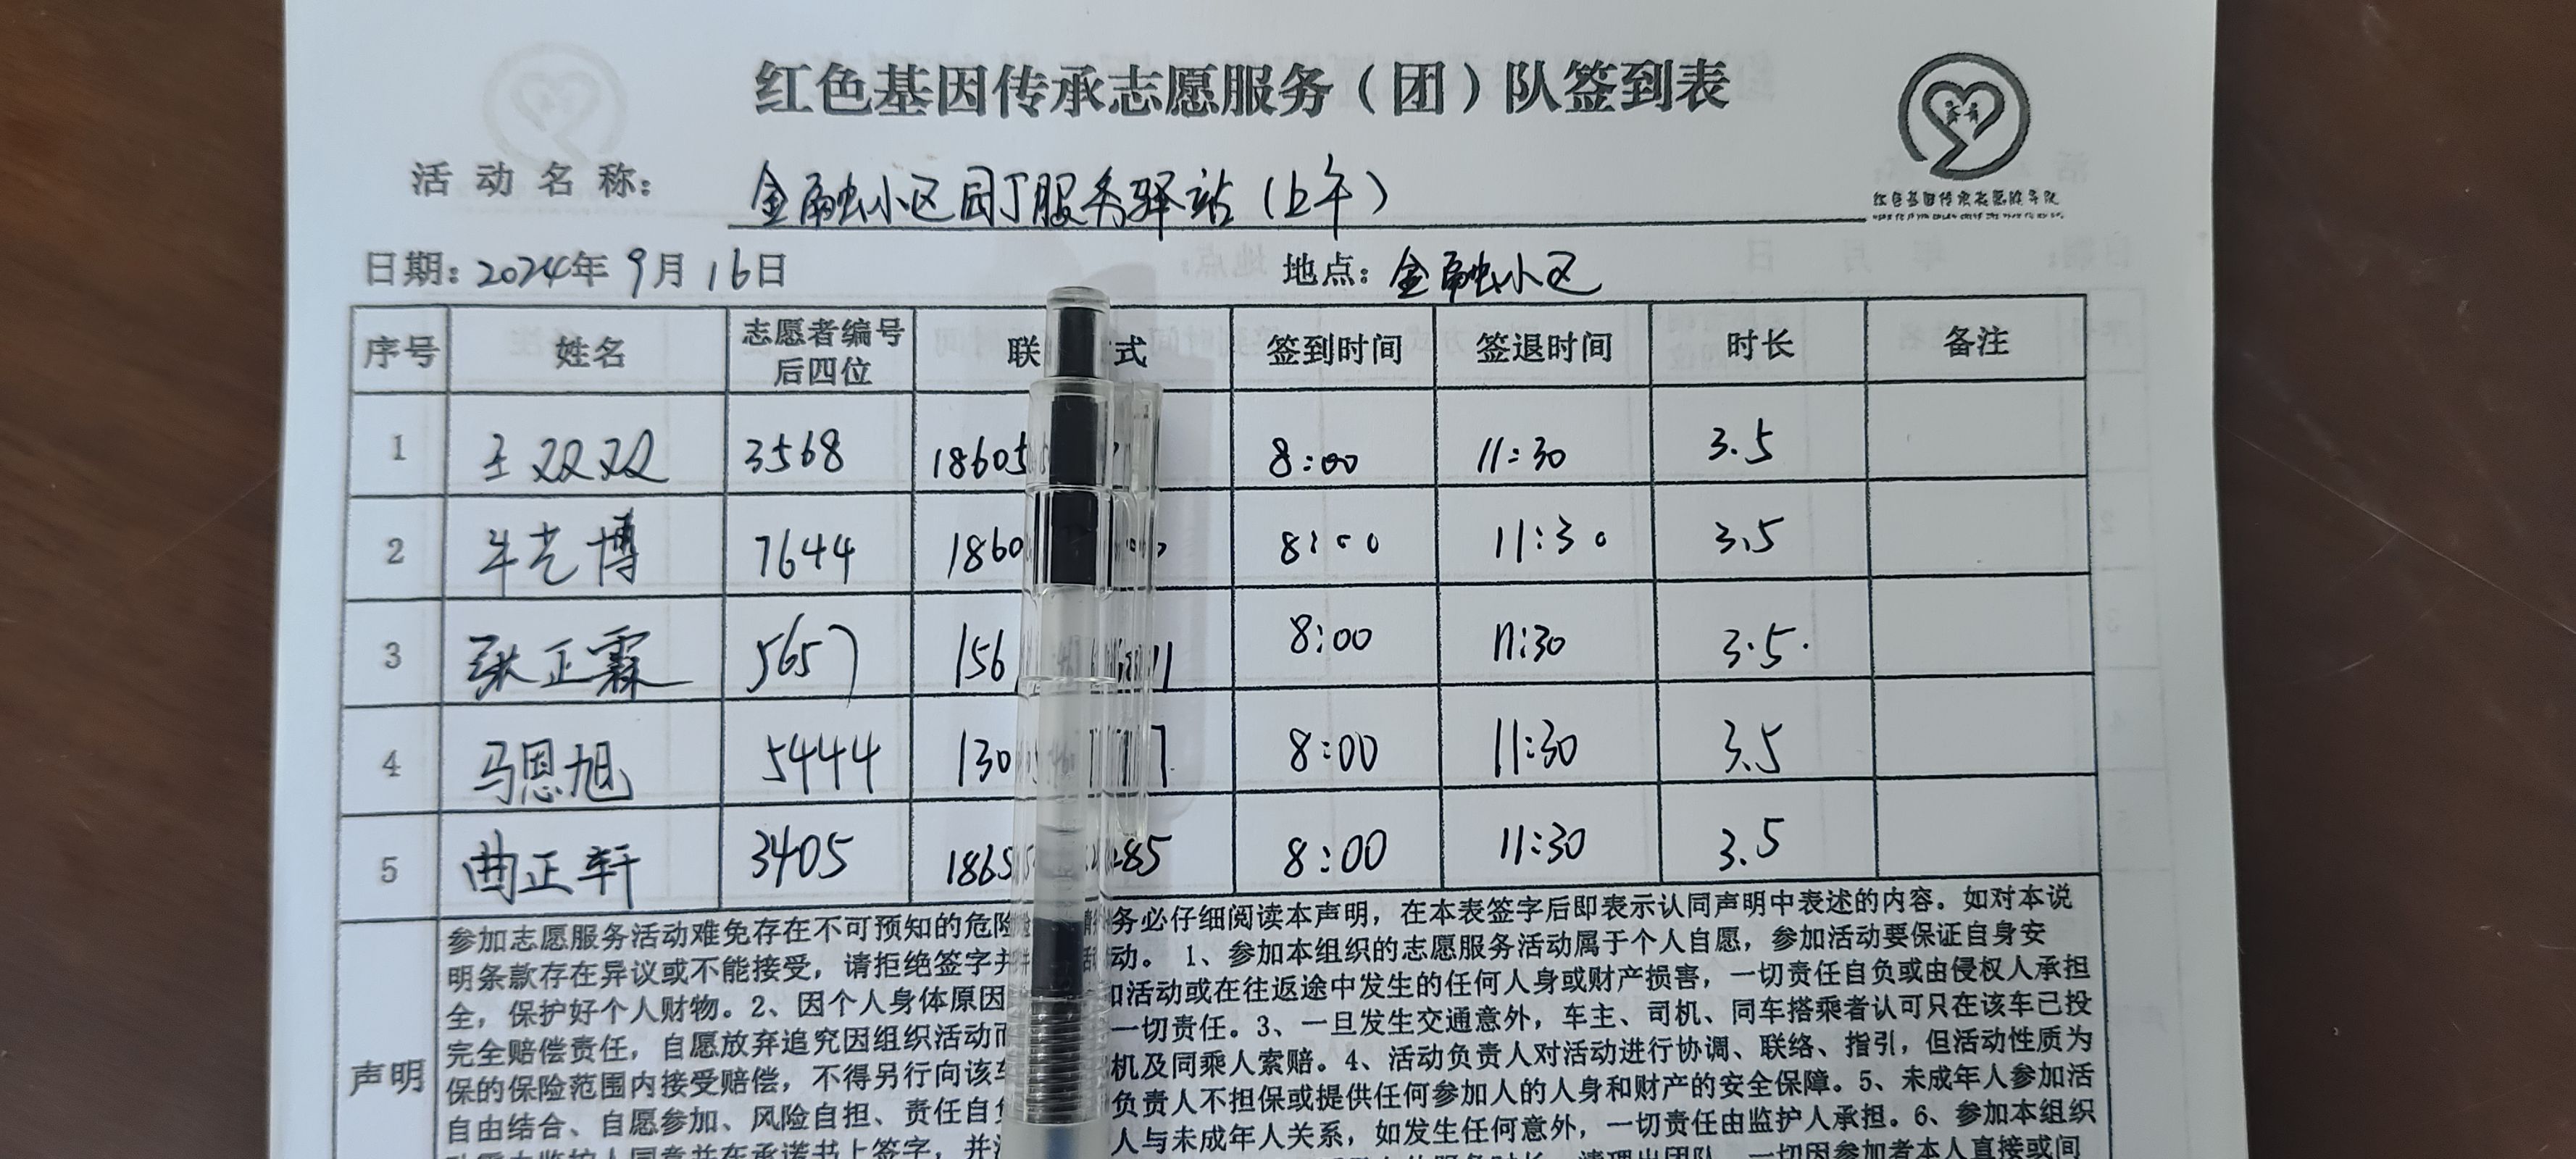 红色基因传承志愿服务（团）队签到表
红色基因传承志愿服务队
活动名称：金融小区园丁服务驿站（上午）
日期：2024年9月16日 地点：金融小区
序号 姓名 志愿者编号后四位 联 式 签到时间 签退时间 时长 备注
1 王双双 3568 18605 8:00 11:30 3.5
2 牟艺博 7644 1860 8:00 11:30 3.5
3 张正霖 5657 156 11 8:00 11:30 3.5.
4 马恩旭 5444 130 7 8:00 11:30 3.5
5 曲正轩 3405 1865 285 8:00 11:30 3.5
声明
参加志愿服务活动难免存在不可预知的危险 务必仔细阅读本声明，在本表签字后即表示认同声明中表述的内容。如对本说
明条款存在异议或不能接受，请拒绝签字并 动。1、参加本组织的志愿服务活动属于个人自愿，参加活动要保证自身安
全，保护好个人财物。2、因个人身体原因 加活动或在往返途中发生的任何人身或财产损害，一切责任自负或由侵权人承担
完全赔偿责任，自愿放弃追究因组织活动而 一切责任。3、一旦发生交通意外，车主、司机、同车搭乘者认可只在该车已投
保的保险范围内接受赔偿，不得另行向该车 机及同乘人索赔。4、活动负责人对活动进行协调、联络、指引，但活动性质为
自由结合、自愿参加、风险自担、责任自负 负责人不担保或提供任何参加人的人身和财产的安全保障。5、未成年人参加活
动需由监护人同意并在承诺书上签字，并 人与未成年人关系，如发生任何意外，一切责任由监护人承担。6、参加本组织
服务时长，清理出团队。一切因参加者本人直接或间